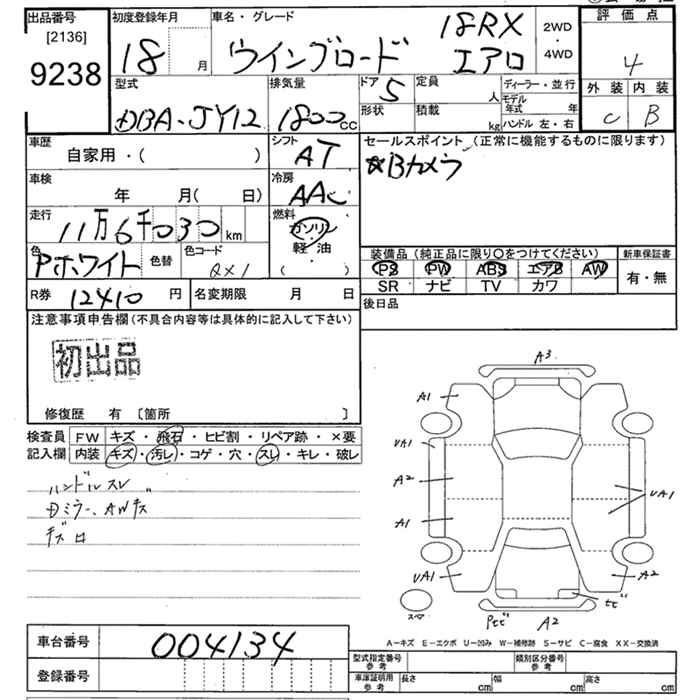 出品番号
[2136]
9238
初度登録年月
18 月
車名・グレード
ウイングロード
18RX
エアロ
2WD
・
4WD
評価点
4
外装 内装
C B
型式
DBA-JY12
排気量
1800cc
ドア 5
形状
定員 人
積載 kg
ディーラー・並行
モデル年式 年
ハンドル 左・右
車歴
自家用・( )
シフト
AT
セールスポイント (正常に機能するものに限ります)
☆Bカメラ
車検
年 月( 日)
冷房
AAC
走行
11万6千030km
燃料
ガソリン
軽油
( )
色
Pホワイト
色替
色コード
QX1
装備品 (純正品に限り○をつけてください)
PS PW ABS エアB AW
SR ナビ TV カワ
新車保証書
有・無
R券 12410 円
名変期限 月 日
後日品
注意事項申告欄(不具合内容等は具体的に記入して下さい)
初出品
修復歴 有 〔箇所 〕
検査員 FW キズ・飛石・ヒビ割・リペア跡・×要
記入欄 内装 キズ・汚レ・コゲ・穴・スレ・キレ・破レ
ハンドルスレ
Dミラー、AWキズ
A3
A1
UA1
A2
A1
UA1
UA1
A2
スペア
Pヒビ
A2
ヒビ
A-キズ E-エクボ U-凹み W-補修跡 S-サビ C-腐食 XX-交換済
車台番号 004134
登録番号
型式指定番号
参考
類別区分番号
参考
車庫証明用
参考
長さ cm 幅 cm 高さ cm